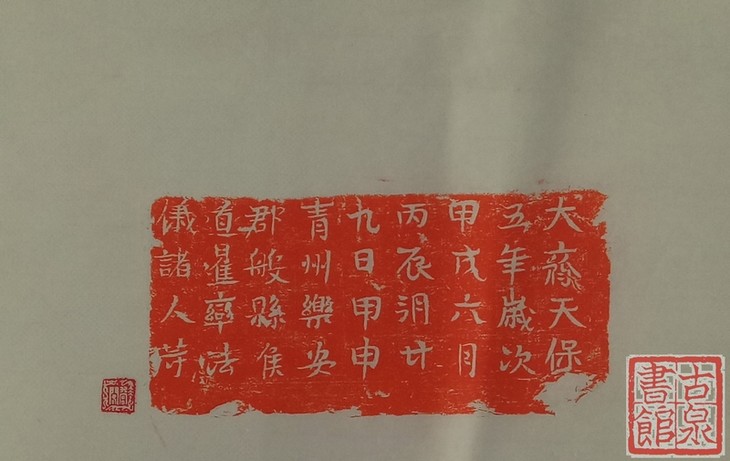 大齊天保
五年歲次
甲戌六月
丙辰朔廿
九日甲申
青州樂安
郡般縣侯
道率法
儀諸人等
古泉
書館